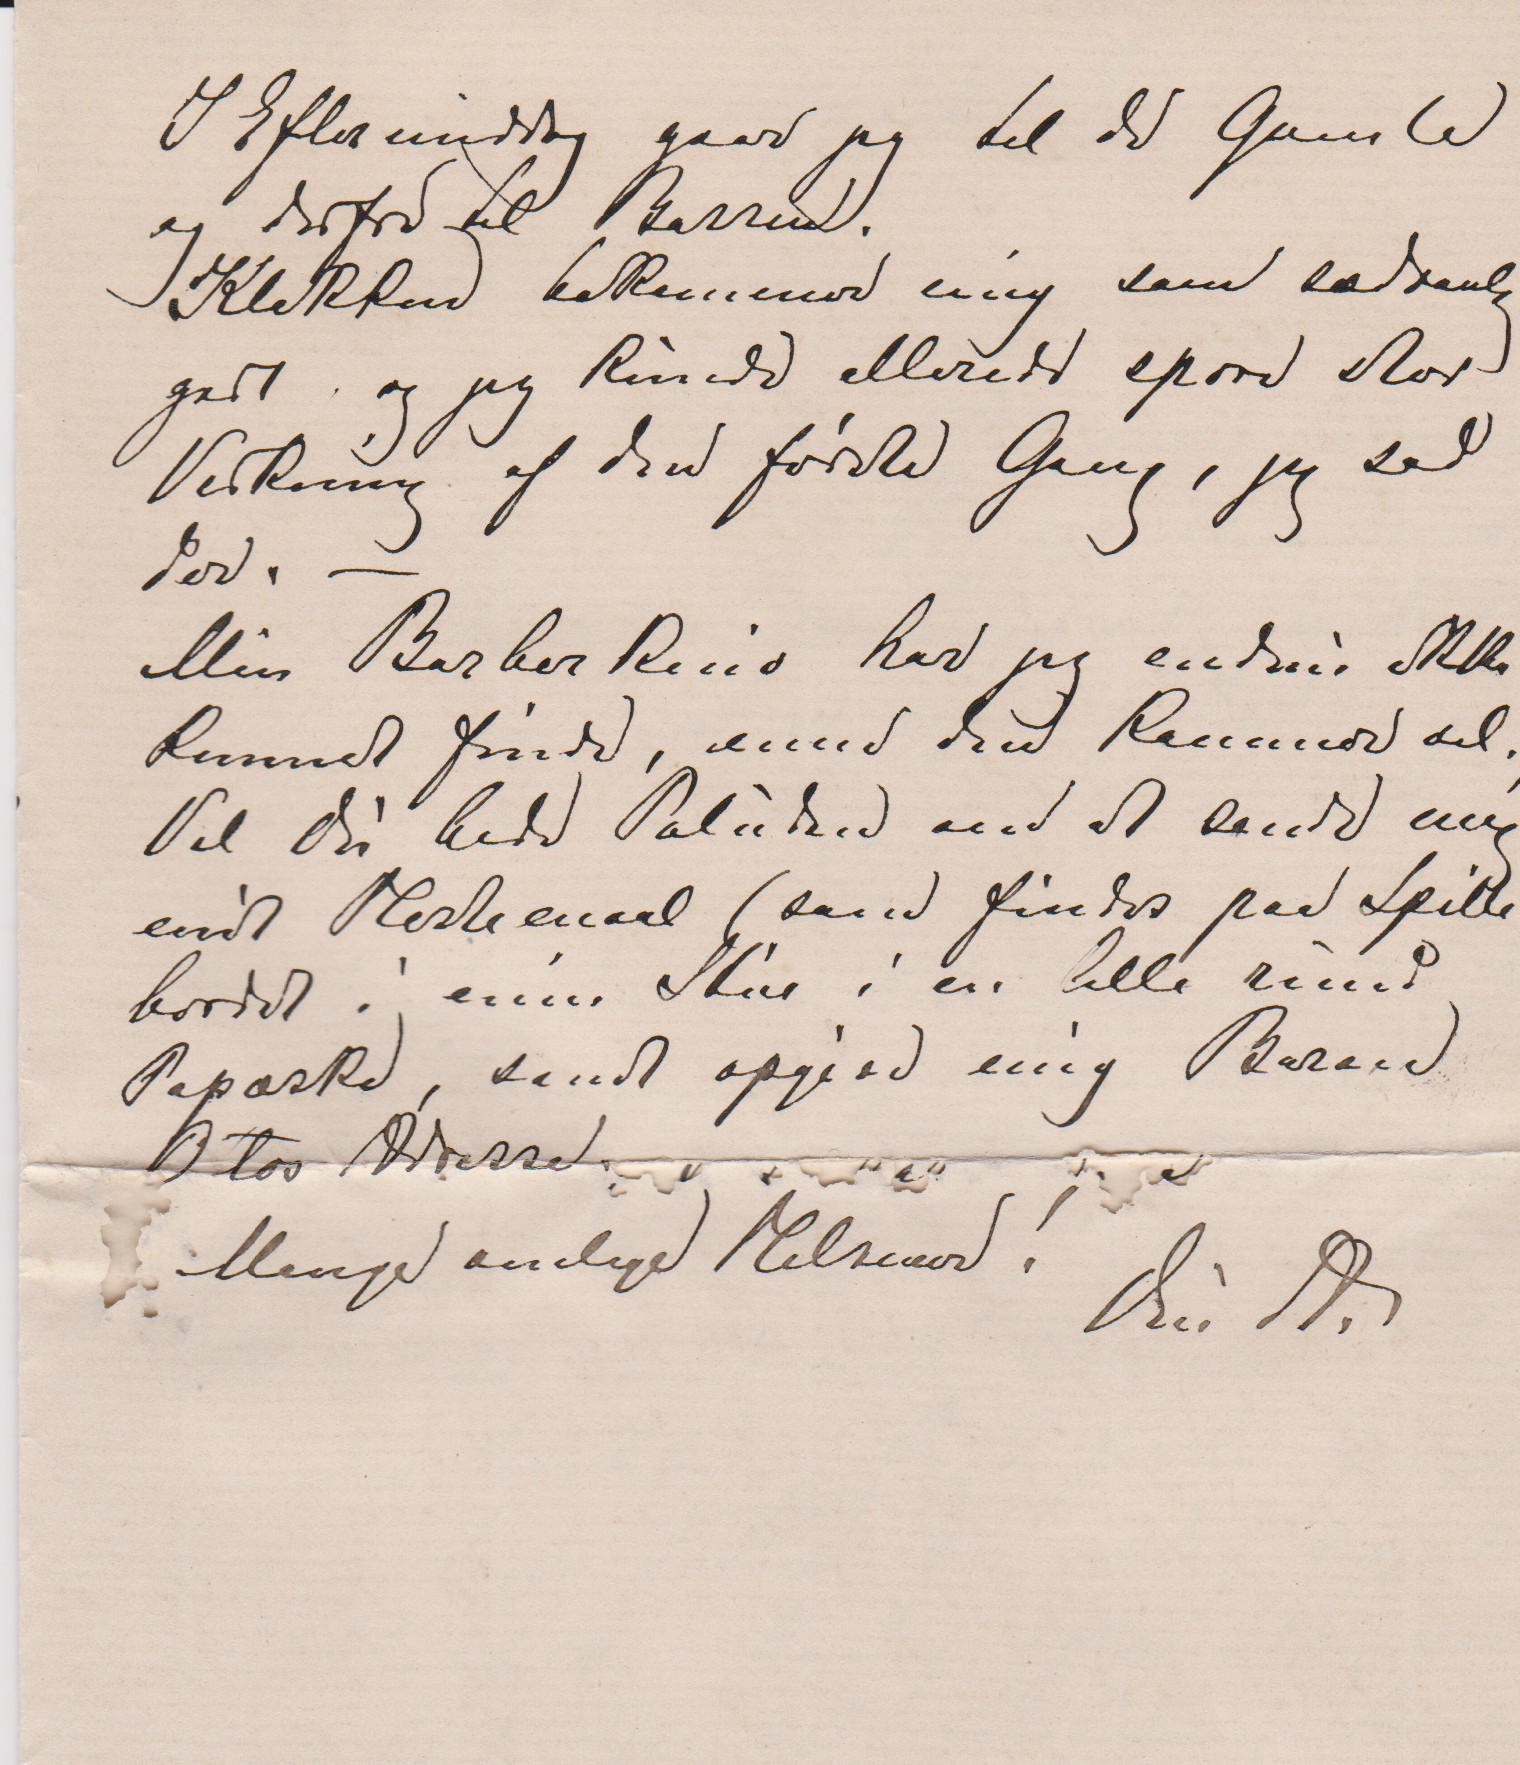 I Eftermiddag gaar jeg til de Gamle
og derfra til Barren.
Klokken bekommer mig som sædvanlig
godt og jeg kunde allerede spore stor
Virkning af den første Gang, jeg sad
der. —
Min Barberkniv har jeg endnu ikke
kunnet finde, mens den kommer vel.
Vil Du bede Paludan om at sende mig
mit Hestemaal (som findes paa Spille
bordet i min Stue i en lille rund
Papæske, samt opgive mig Baron
Ottos Adresse.
Mange venlige Hilsener!
Din A.